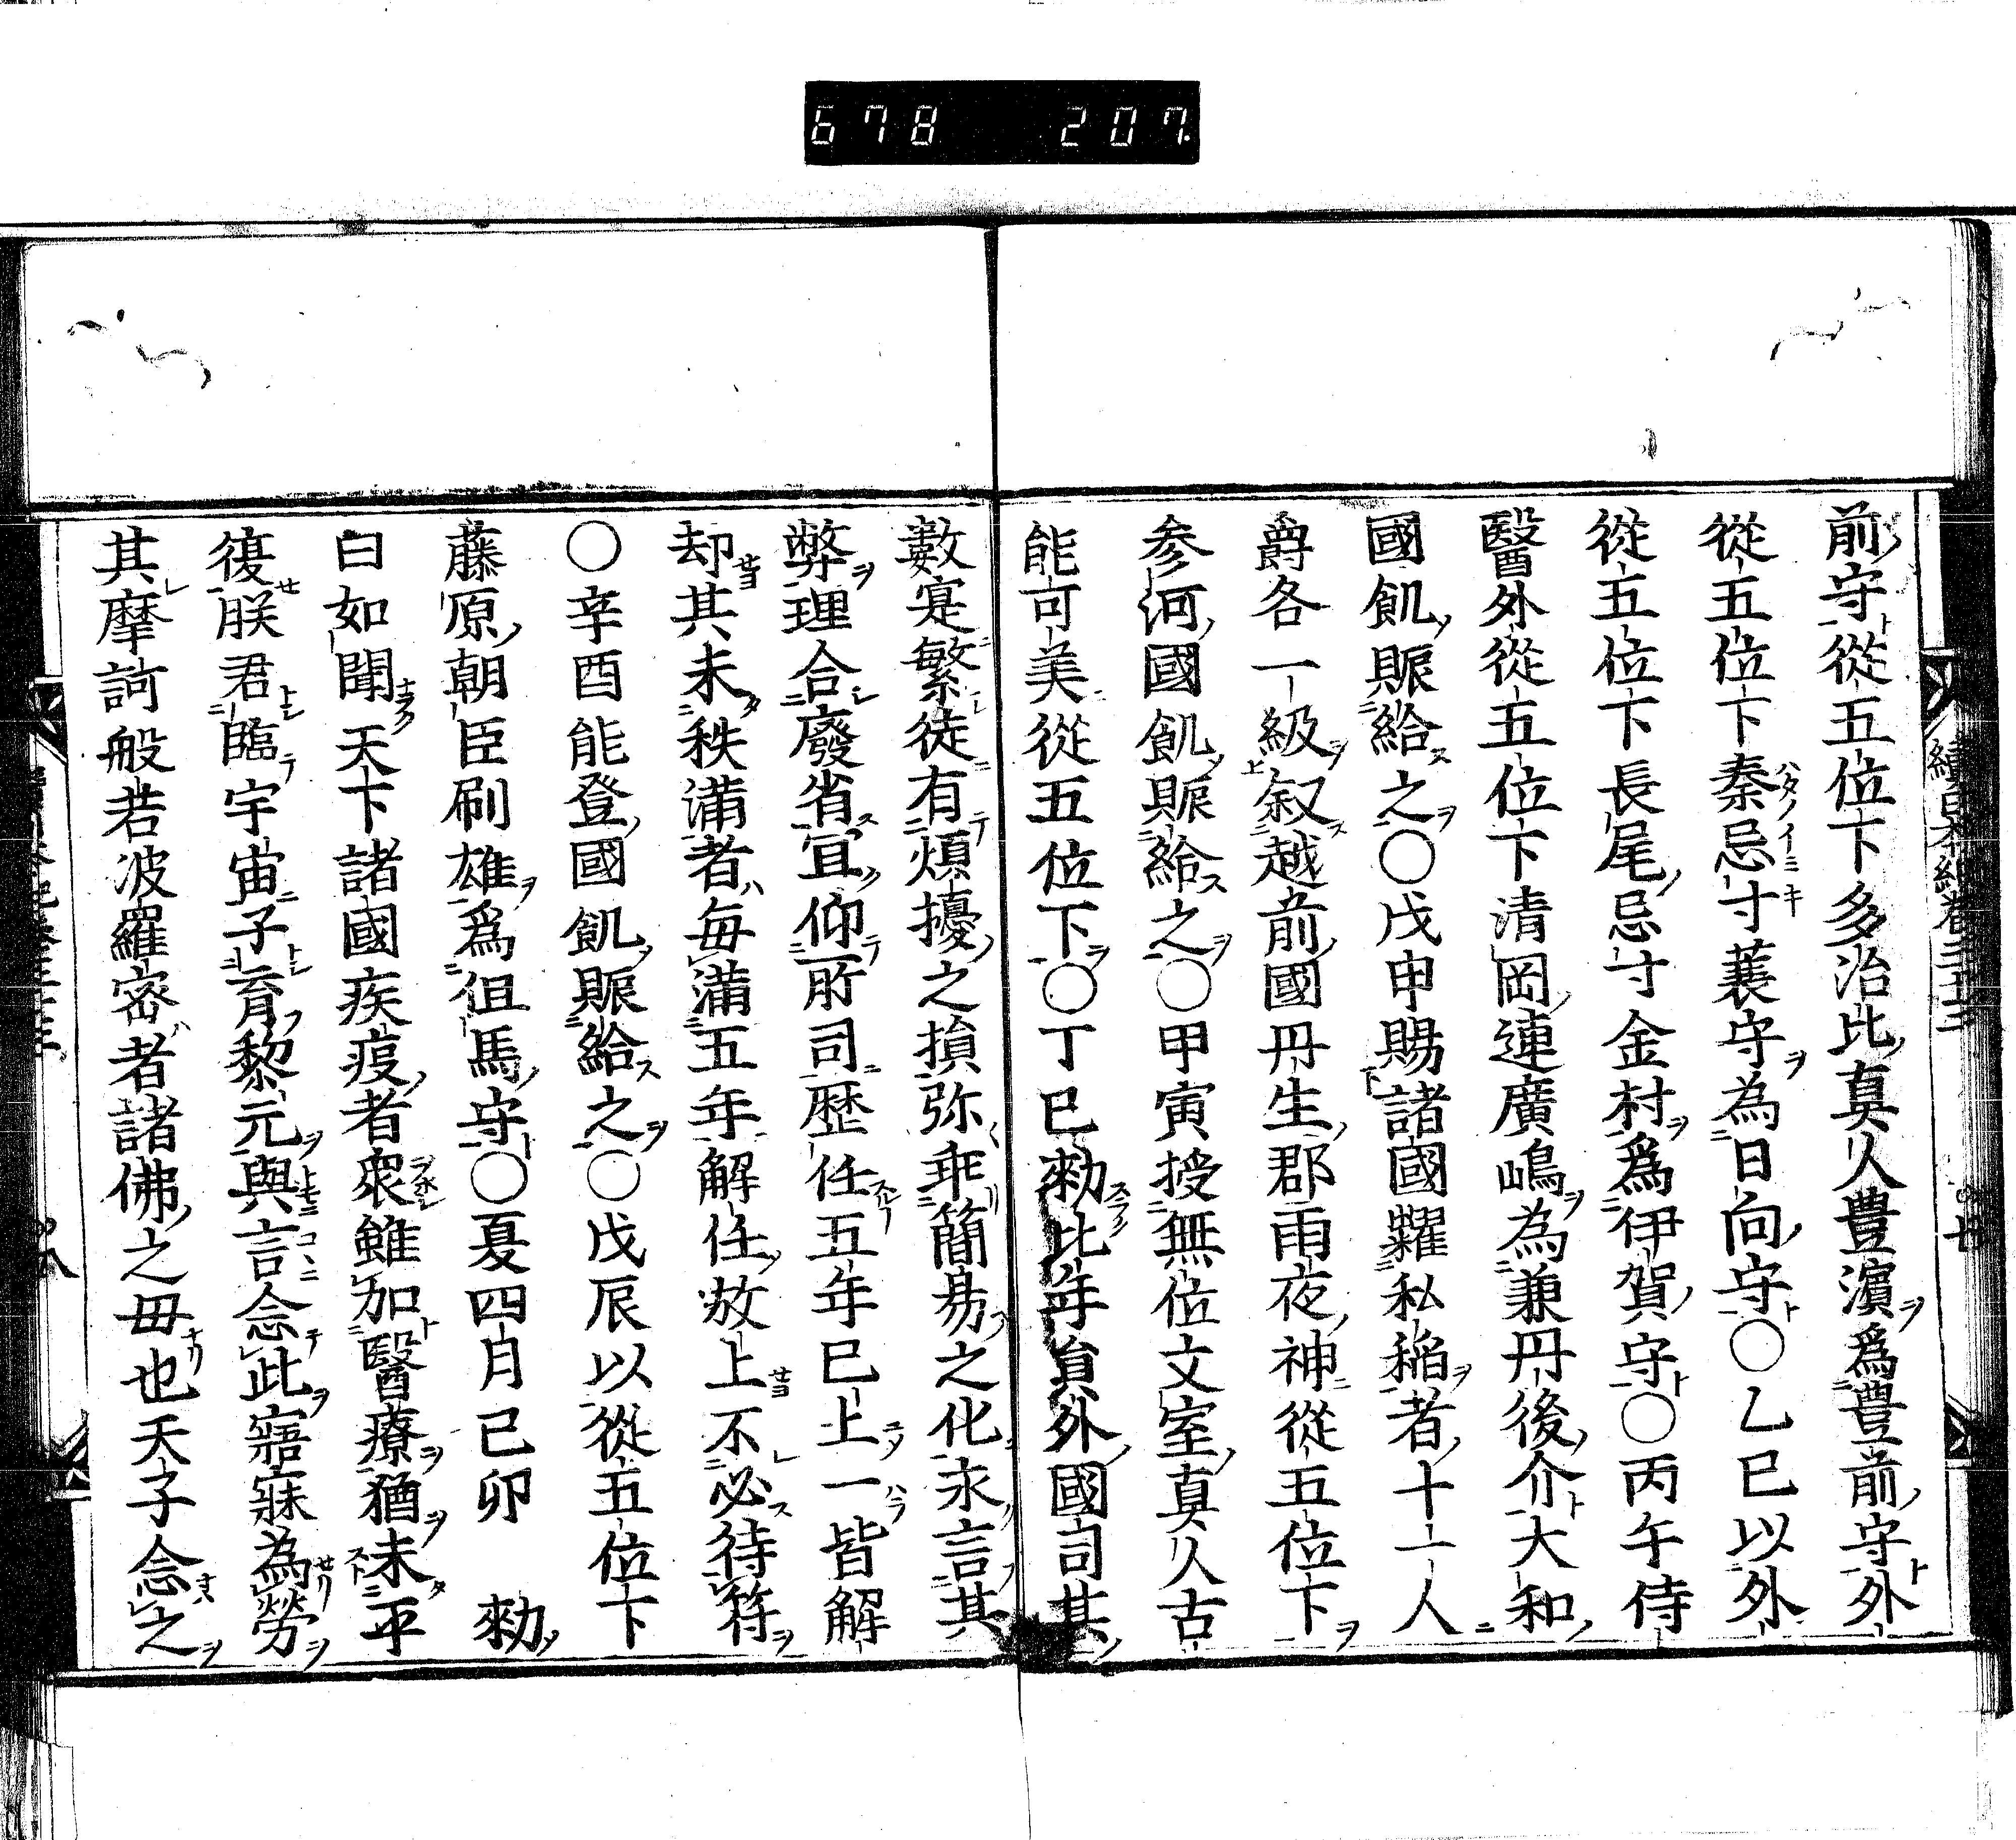 678 207
續日本紀卷三十三
前守從五位下多治比真人豊濵爲豊前守外
從五位下秦忌寸蓑守為日向守○乙巳以外
從五位下長尾忌寸金村爲伊賀守○丙午侍
醫外從五位下清岡連廣嶋為兼丹後介大和
國飢賑給之○戊申賜諸國糶私稲者十一人
爵各一級叙越前國丹生郡雨夜神從五位下
参河國飢賑給之○甲寅授無位文室真人古
能可美從五位下○丁巳勑比年員外國司其
數寔繁徒有煩擾之損弥乖簡易之化永言其
弊理合廢省宜仰所司歴任五年已上一皆解
却其未秩満者毎満五年解任放上不必待符
○辛酉能登國飢賑給之○戊辰以從五位下
藤原朝臣刷雄爲但馬守○夏四月己卯 勑
曰如聞天下諸國疾疫者衆雖加醫療猶未平
復朕君臨宇宙子育黎元與言念此寤寐為勞
其摩訶般若波羅密者諸佛之毋也天子念之